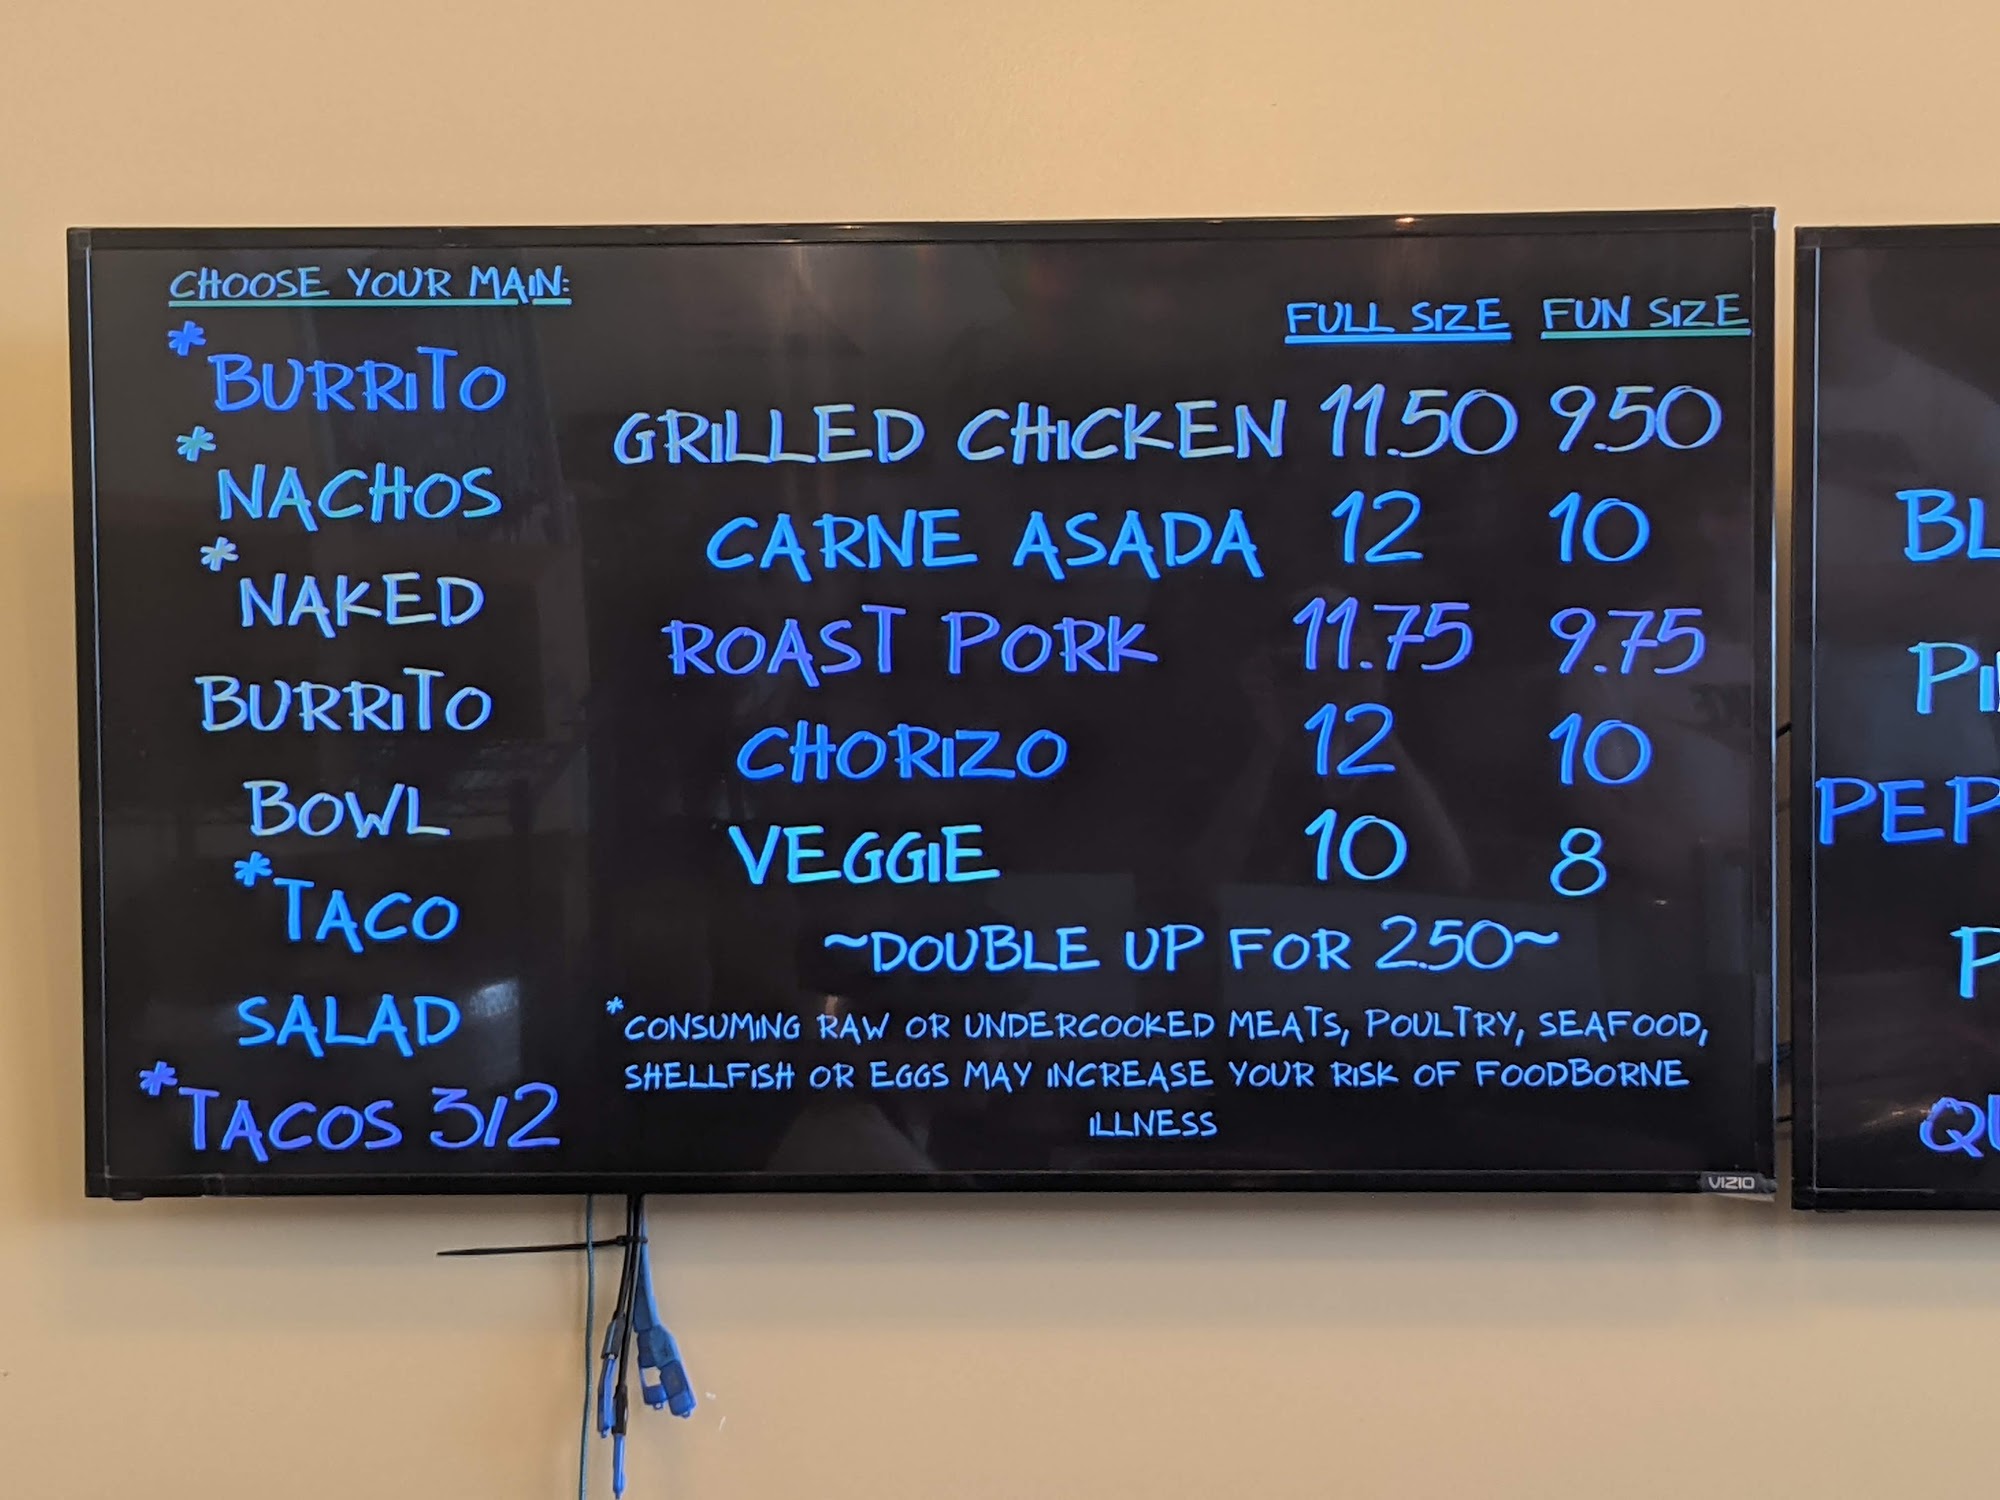 CHOOSE YOUR MAIN:
*BURRITO
*NACHOS
*NAKED
BURRITO
BOWL
*TACO
SALAD
*TACOS 3/2
FULL SIZE FUN SIZE
GRILLED CHICKEN 11.50 9.50
CARNE ASADA 12 10
ROAST PORK 11.75 9.75
CHORIZO 12 10
VEGGIE 10 8
~DOUBLE UP FOR 2.50~
*CONSUMING RAW OR UNDERCOOKED MEATS, POULTRY, SEAFOOD,
SHELLFISH OR EGGS MAY INCREASE YOUR RISK OF FOODBORNE
ILLNESS
VIZIO